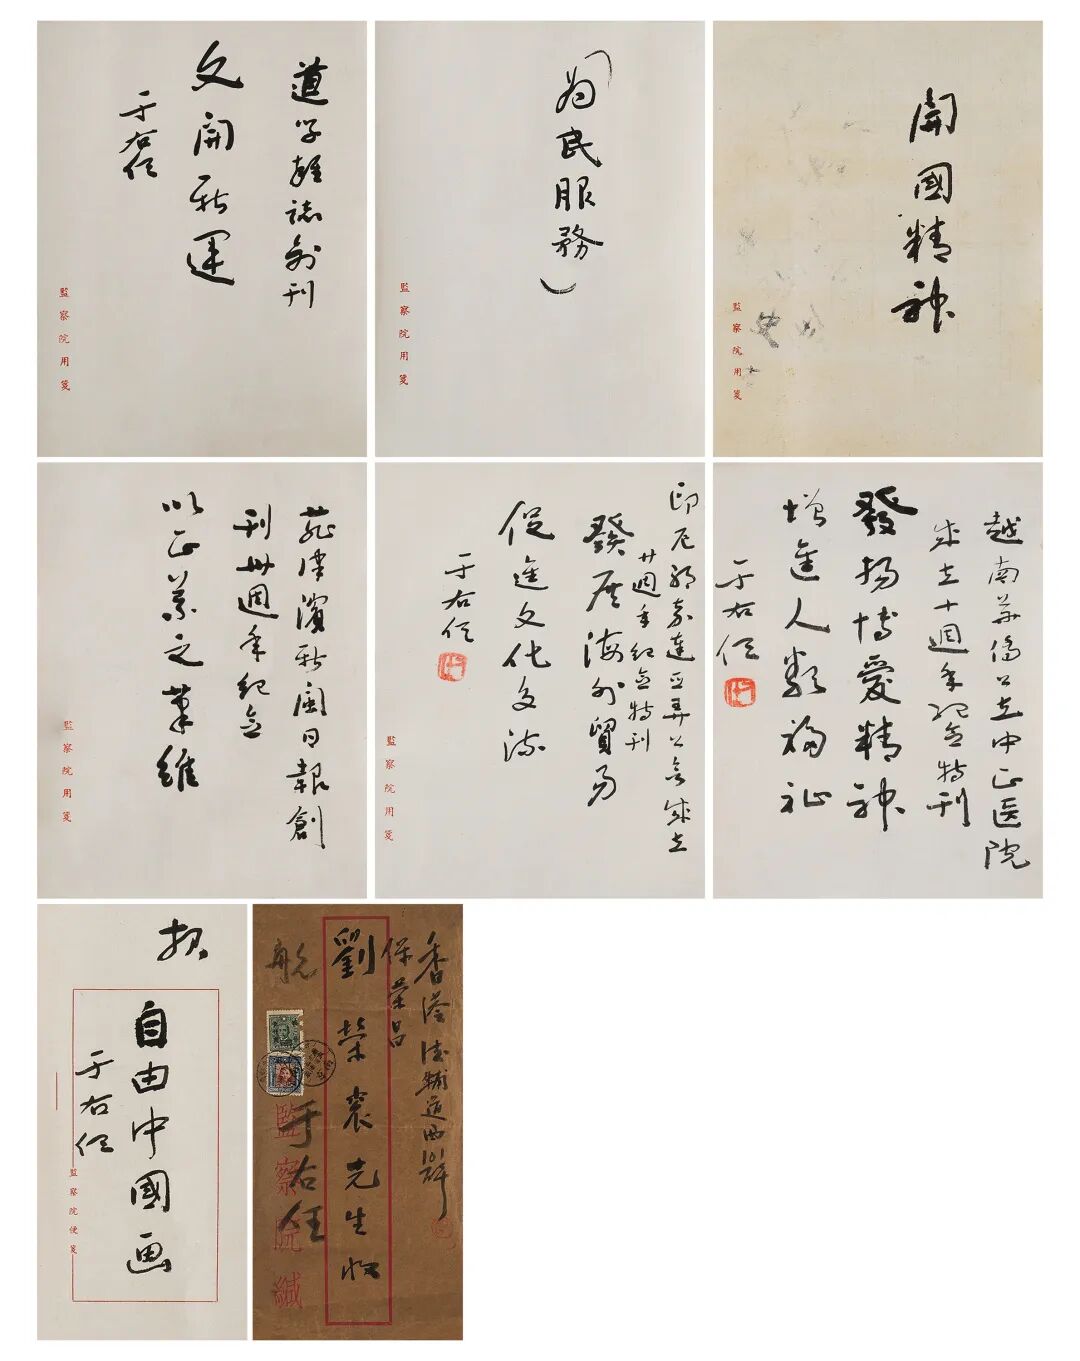 道学雜誌創刊
文開新運
于右任
監察院用箋
（為民服務）
監察院用箋
開國精神
監察院用箋
菲律濱新閩日報創
刊卅週年紀念
以正義之筆維
監察院用箋
印尼椰嘉達亞弄公會成立
廿週年紀念特刊
發展海外貿易
促進文化交流
于右任
監察院用箋
越南華僑公立中正医院
成立十週年紀念特刊
發揚博愛精神
增進人類福祉
于右任
祝
自由中國画
于右任
監察院便箋
香港德輔道西101號
保榮昌
劉榮袞先生收
航
于右任
監察院緘